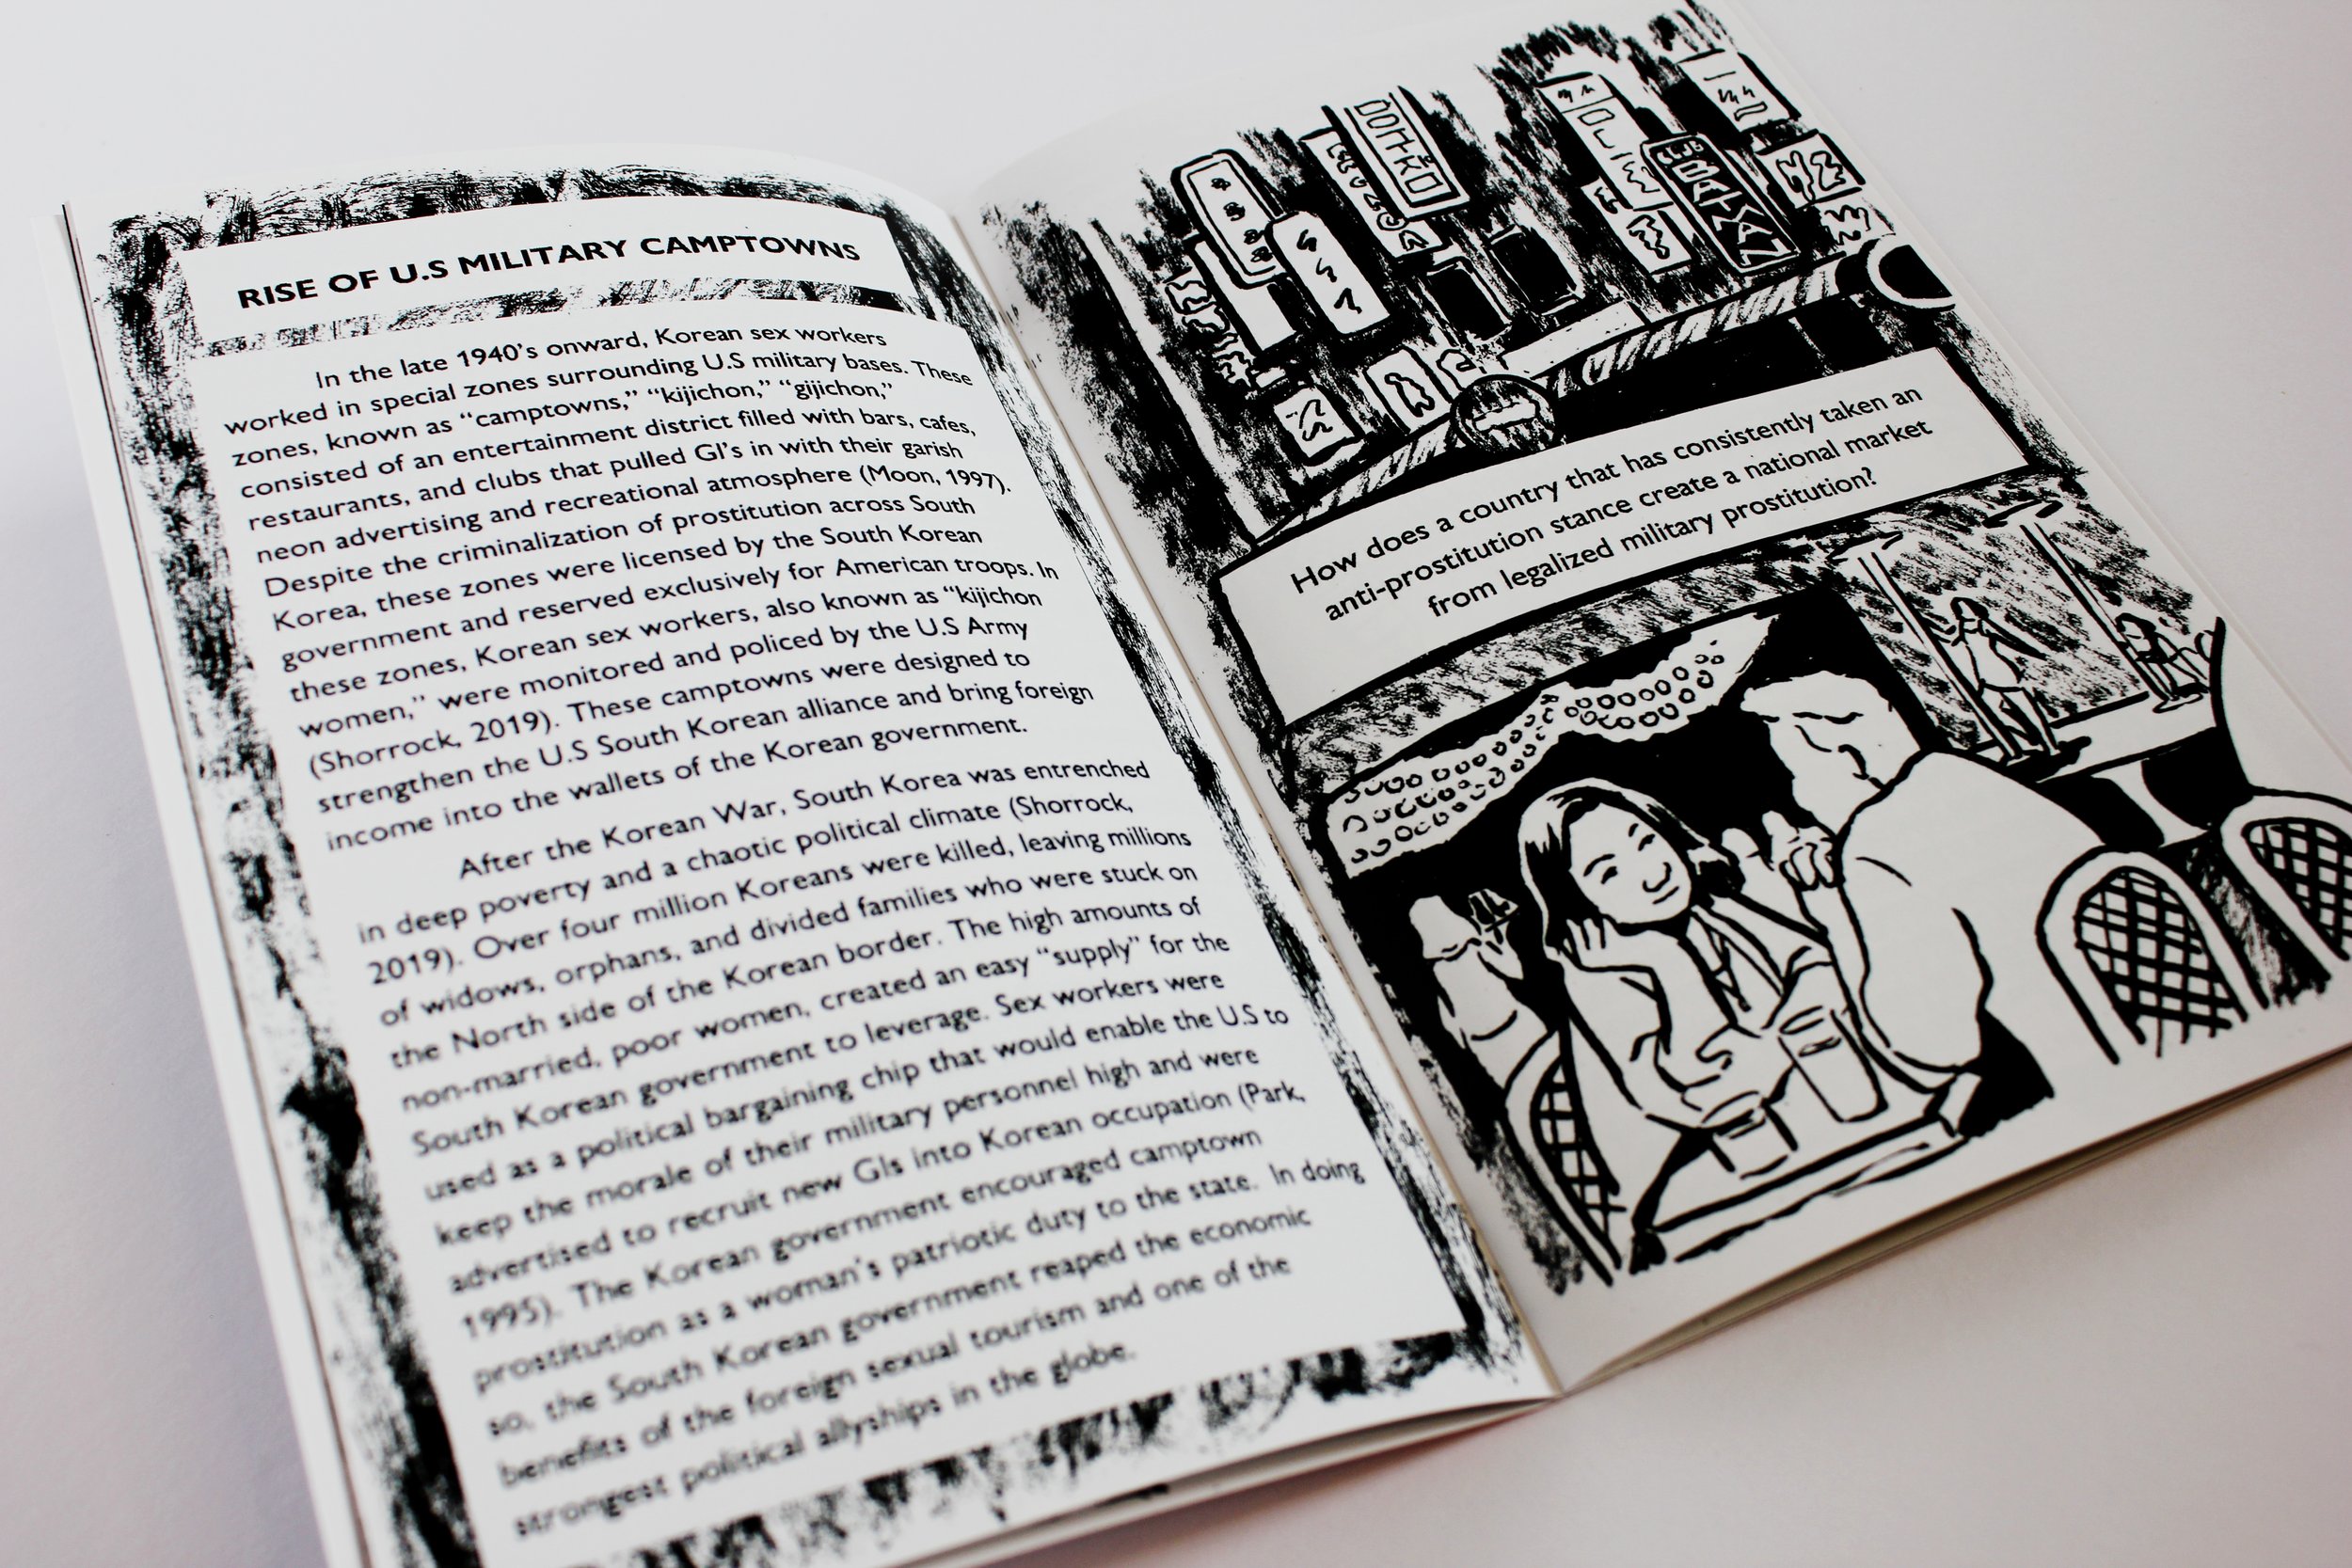 RISE OF U.S MILITARY CAMPTOWNS
In the late 1940's onward, Korean sex workers
worked in special zones surrounding U.S military bases. These
zones, known as “camptowns,” “kijichon,” “gijichon,”
consisted of an entertainment district filled with bars, cafes,
restaurants, and clubs that pulled GI's in with their garish
neon advertising and recreational atmosphere (Moon, 1997).
Despite the criminalization of prostitution across South
Korea, these zones were licensed by the South Korean
government and reserved exclusively for American troops. In
these zones, Korean sex workers, also known as “kijichon
women,” were monitored and policed by the U.S Army
(Shorrock, 2019). These camptowns were designed to
strengthen the U.S South Korean alliance and bring foreign
income into the wallets of the Korean government.
After the Korean War, South Korea was entrenched
in deep poverty and a chaotic political climate (Shorrock,
2019). Over four million Koreans were killed, leaving millions
of widows, orphans, and divided families who were stuck on
the North side of the Korean border. The high amounts of
non-married, poor women, created an easy “supply” for the
South Korean government to leverage. Sex workers were
used as a political bargaining chip that would enable the U.S to
keep the morale of their military personnel high and were
advertised to recruit new GIs into Korean occupation (Park,
1995). The Korean government encouraged camptown
prostitution as a woman's patriotic duty to the state. In doing
so, the South Korean government reaped the economic
benefits of the foreign sexual tourism and one of the
strongest political allyships in the globe.
How does a country that has consistently taken an
anti-prostitution stance create a national market
from legalized military prostitution?